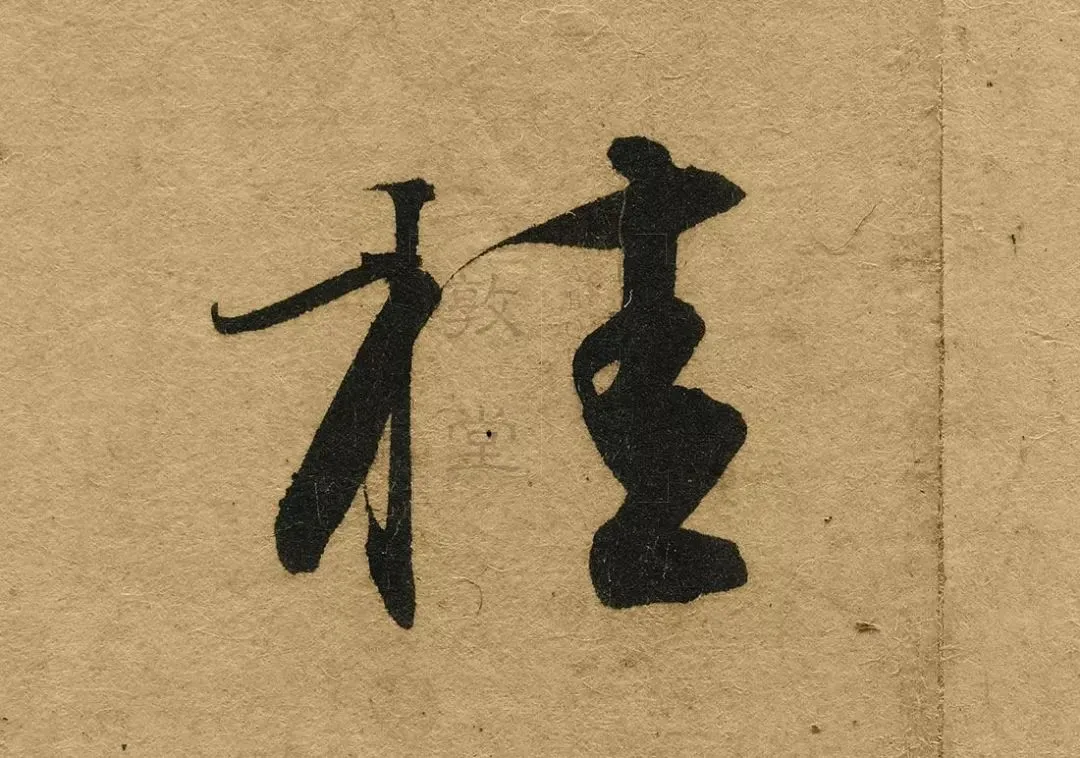 桂
敦堂